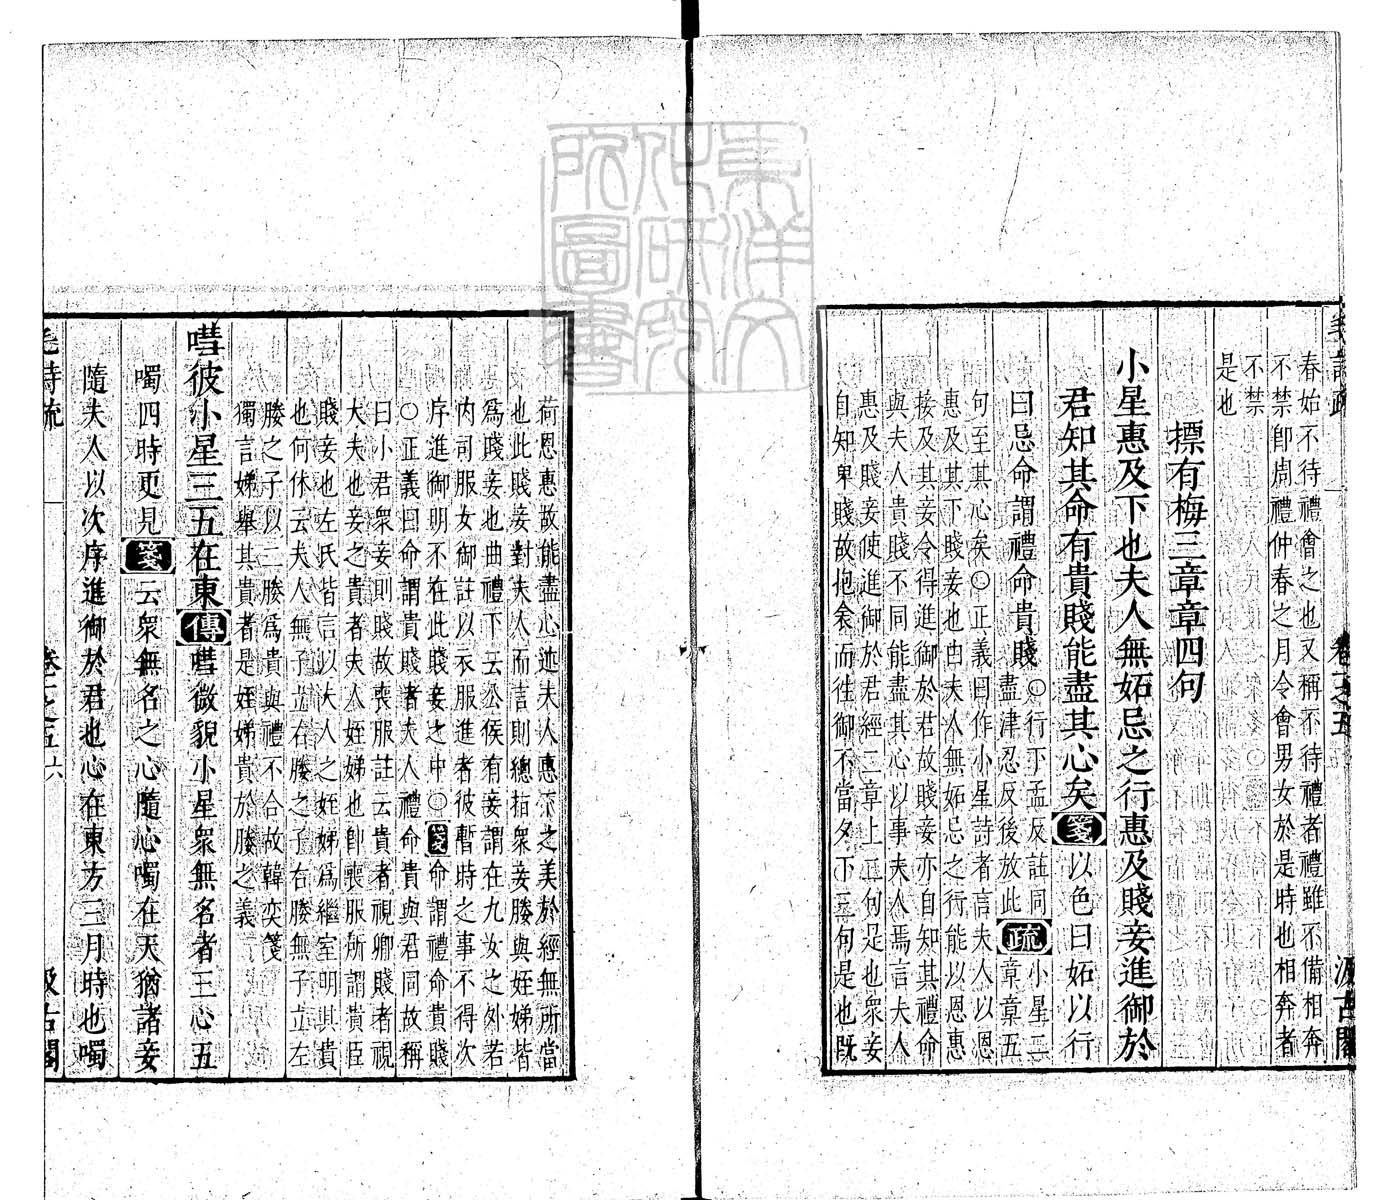 毛詩疏 卷一之五 汲古閣
春始不待禮會之也又稱不待禮者禮雖不備相奔
不禁卽周禮仲春之月令會男女於是時也相奔者
不禁
是也
摽有梅三章章四句
小星惠及下也夫人無妬忌之行惠及賤妾進御於
君知其命有貴賤能盡其心矣箋以色曰妬以行
曰忌命謂禮命貴賤○行下孟反註同
盡津忍反後放此疏小星二
章章五
句至其心矣○正義曰作小星詩者言夫人以恩
惠及其下賤妾也由夫人無妬忌之行能以恩惠
接及其妾令得進御於君故賤妾亦自知其禮命
與夫人貴賤不同能盡其心以事夫人焉言夫人
惠及賤妾使進御於君經二章上二句是也衆妾
自知卑賤故抱衾而往御不當夕下三句是也既
荷恩惠故能盡心述夫人惠下之美於經無所當
也此賤妾對夫人而言則總指衆妾媵與姪娣皆
爲賤妾也曲禮下云公侯有妾謂在九女之外若
內司服女御註以衣服進者彼暫時之事不得次
序進御明不在此賤妾之中○箋命謂禮命貴賤
○正義曰命謂貴賤者夫人禮命貴與君同故稱
曰小君衆妾則賤故喪服註云貴者視卿賤者視
大夫也妾之貴者夫人姪娣也卽喪服所謂貴臣
賤妾也左氏皆言以夫人之姪娣爲繼室明其貴
也何休云夫人無子立右媵之子右媵無子立左
媵之子以二媵爲貴與禮不合故韓奕箋
獨言娣舉其貴者是姪娣貴於媵之義
嘒彼小星三五在東傳嘒微貌小星衆無名者三心五
噣四時更見箋云衆無名之心隨心噣在天猶諸妾
隨夫人以次序進御於君也心在東方三月時也噣
毛詩疏 卷一之五 六 汲古閣
東洋文化研究所圖書